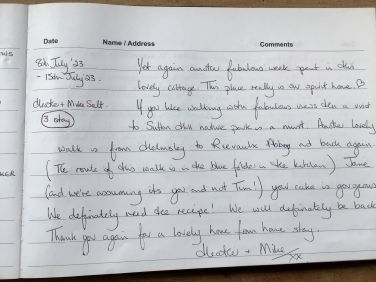 Date Name / Address Comments
8th July '23 Yet again another fabulous week spent in this
- 15th July 23. lovely cottage. This place really is our spirit home.
+ Mike Salt. If you like walking with fabulous views then a visit
(3rd stay) to Sutton Bank nature park is a must. Another lovely
walk is from Helmsley to Rievaulx Abbey and back again
(The route of this walk is in the blue folder in the kitchen) Jane
(and we're assuming its you and not Tim!) your cake is gorgeous
We definately need the recipe! We will definately be back
Thank you again for a lovely home from home stay.
+ Mike xx